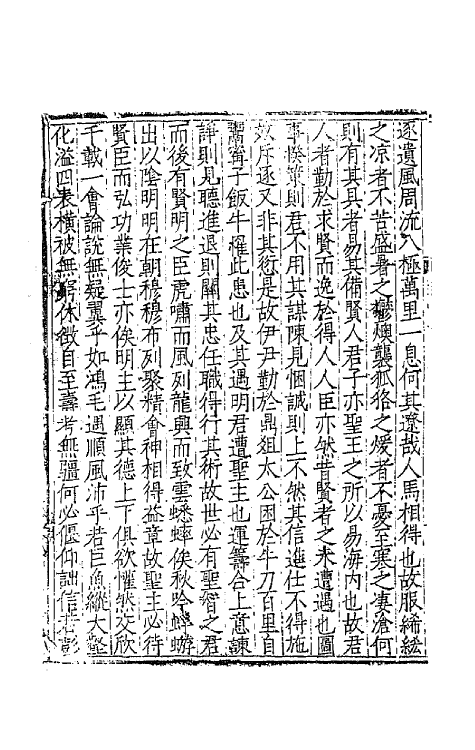 逐遺風周流八極萬里一息何其遼哉人馬相得也故服絺綌
之凉者不苦盛暑之鬱燠襲狐狢之煖者不憂至寒之凄滄何
則有其具者易其備賢人君子亦聖王之所以易海内也故君
人者勤於求賢而逸於得人人臣亦然昔賢者之未遭遇也圖
事揆策則君不用其謀陳見悃誠則上不然其信進仕不得施
效斥逐又非其愆是故伊尹勤於鼎俎太公困於牛刀百里自
鬻甯子飯牛罹此患也及其遇明君遭聖主也運籌合上意諫
諍則見聽進退則關其忠任職得行其術故世必有聖智之君
而後有賢明之臣虎嘯而風列龍興而致雲蟋蟀俟秋吟蜉蝣
出以陰明明在朝穆穆布列聚精會神相得益章故聖主必待
賢臣而弘功業俊士亦俟明主以顯其德上下俱欲懽然交欣
千載一會論說無疑翼乎如鴻毛遇順風沛乎若巨魚縱大壑
化溢四表橫被無窮休徵自至壽考無疆何必偃仰詘信若彭